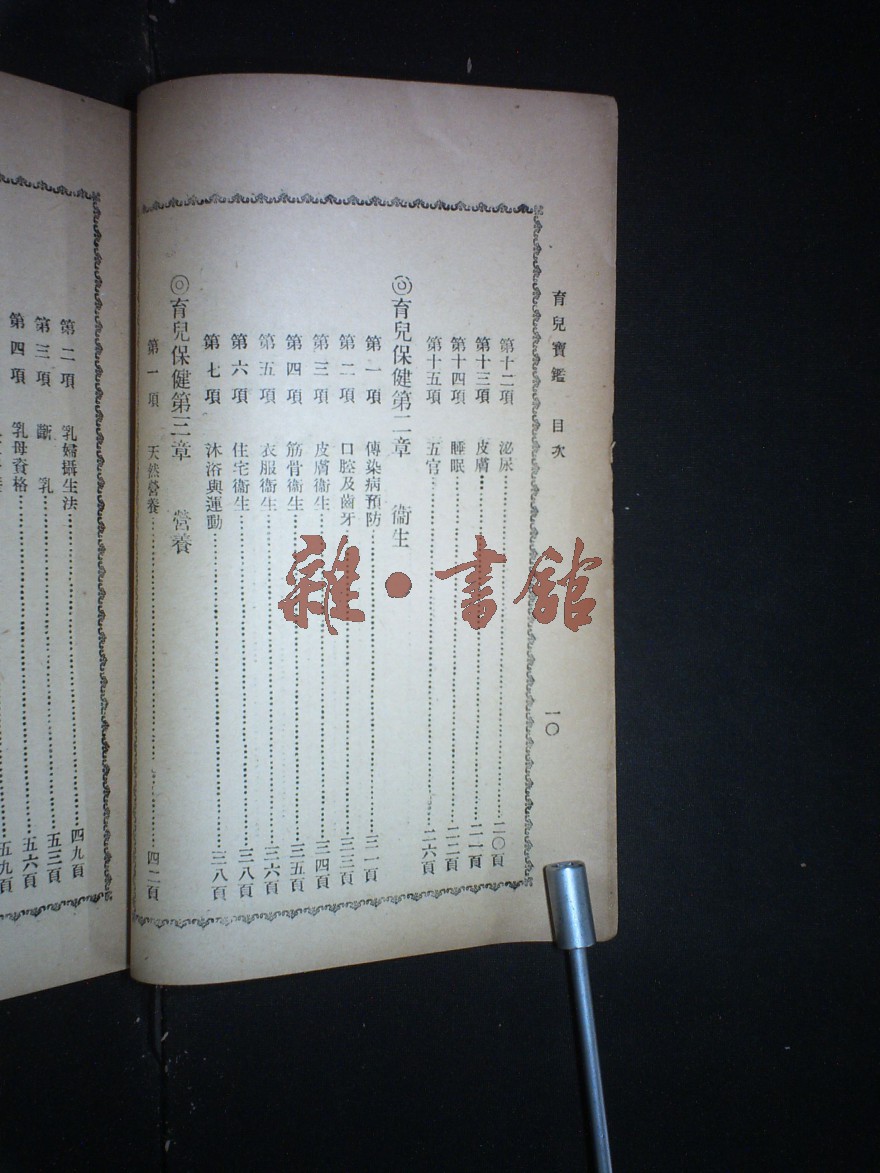 育兒寶鑑 目次 一〇
第十二項 泌尿……二〇頁
第十三項 皮膚……二一頁
第十四項 睡眠……二二頁
第十五項 五官……二六頁
◎育兒保健第二章 衞生
第一項 傳染病預防……三一頁
第二項 口腔及齒牙……三三頁
第三項 皮膚衞生……三四頁
第四項 筋骨衞生……三五頁
第五項 衣服衞生……三六頁
第六項 住宅衞生……三八頁
第七項 沐浴與運動……三八頁
◎育兒保健第三章 營養
第一項 天然營養……四二頁
第二項 乳婦攝生法……四九頁
第三項 斷乳……五三頁
第四項 乳母資格……五六頁
五九頁
雜·書館